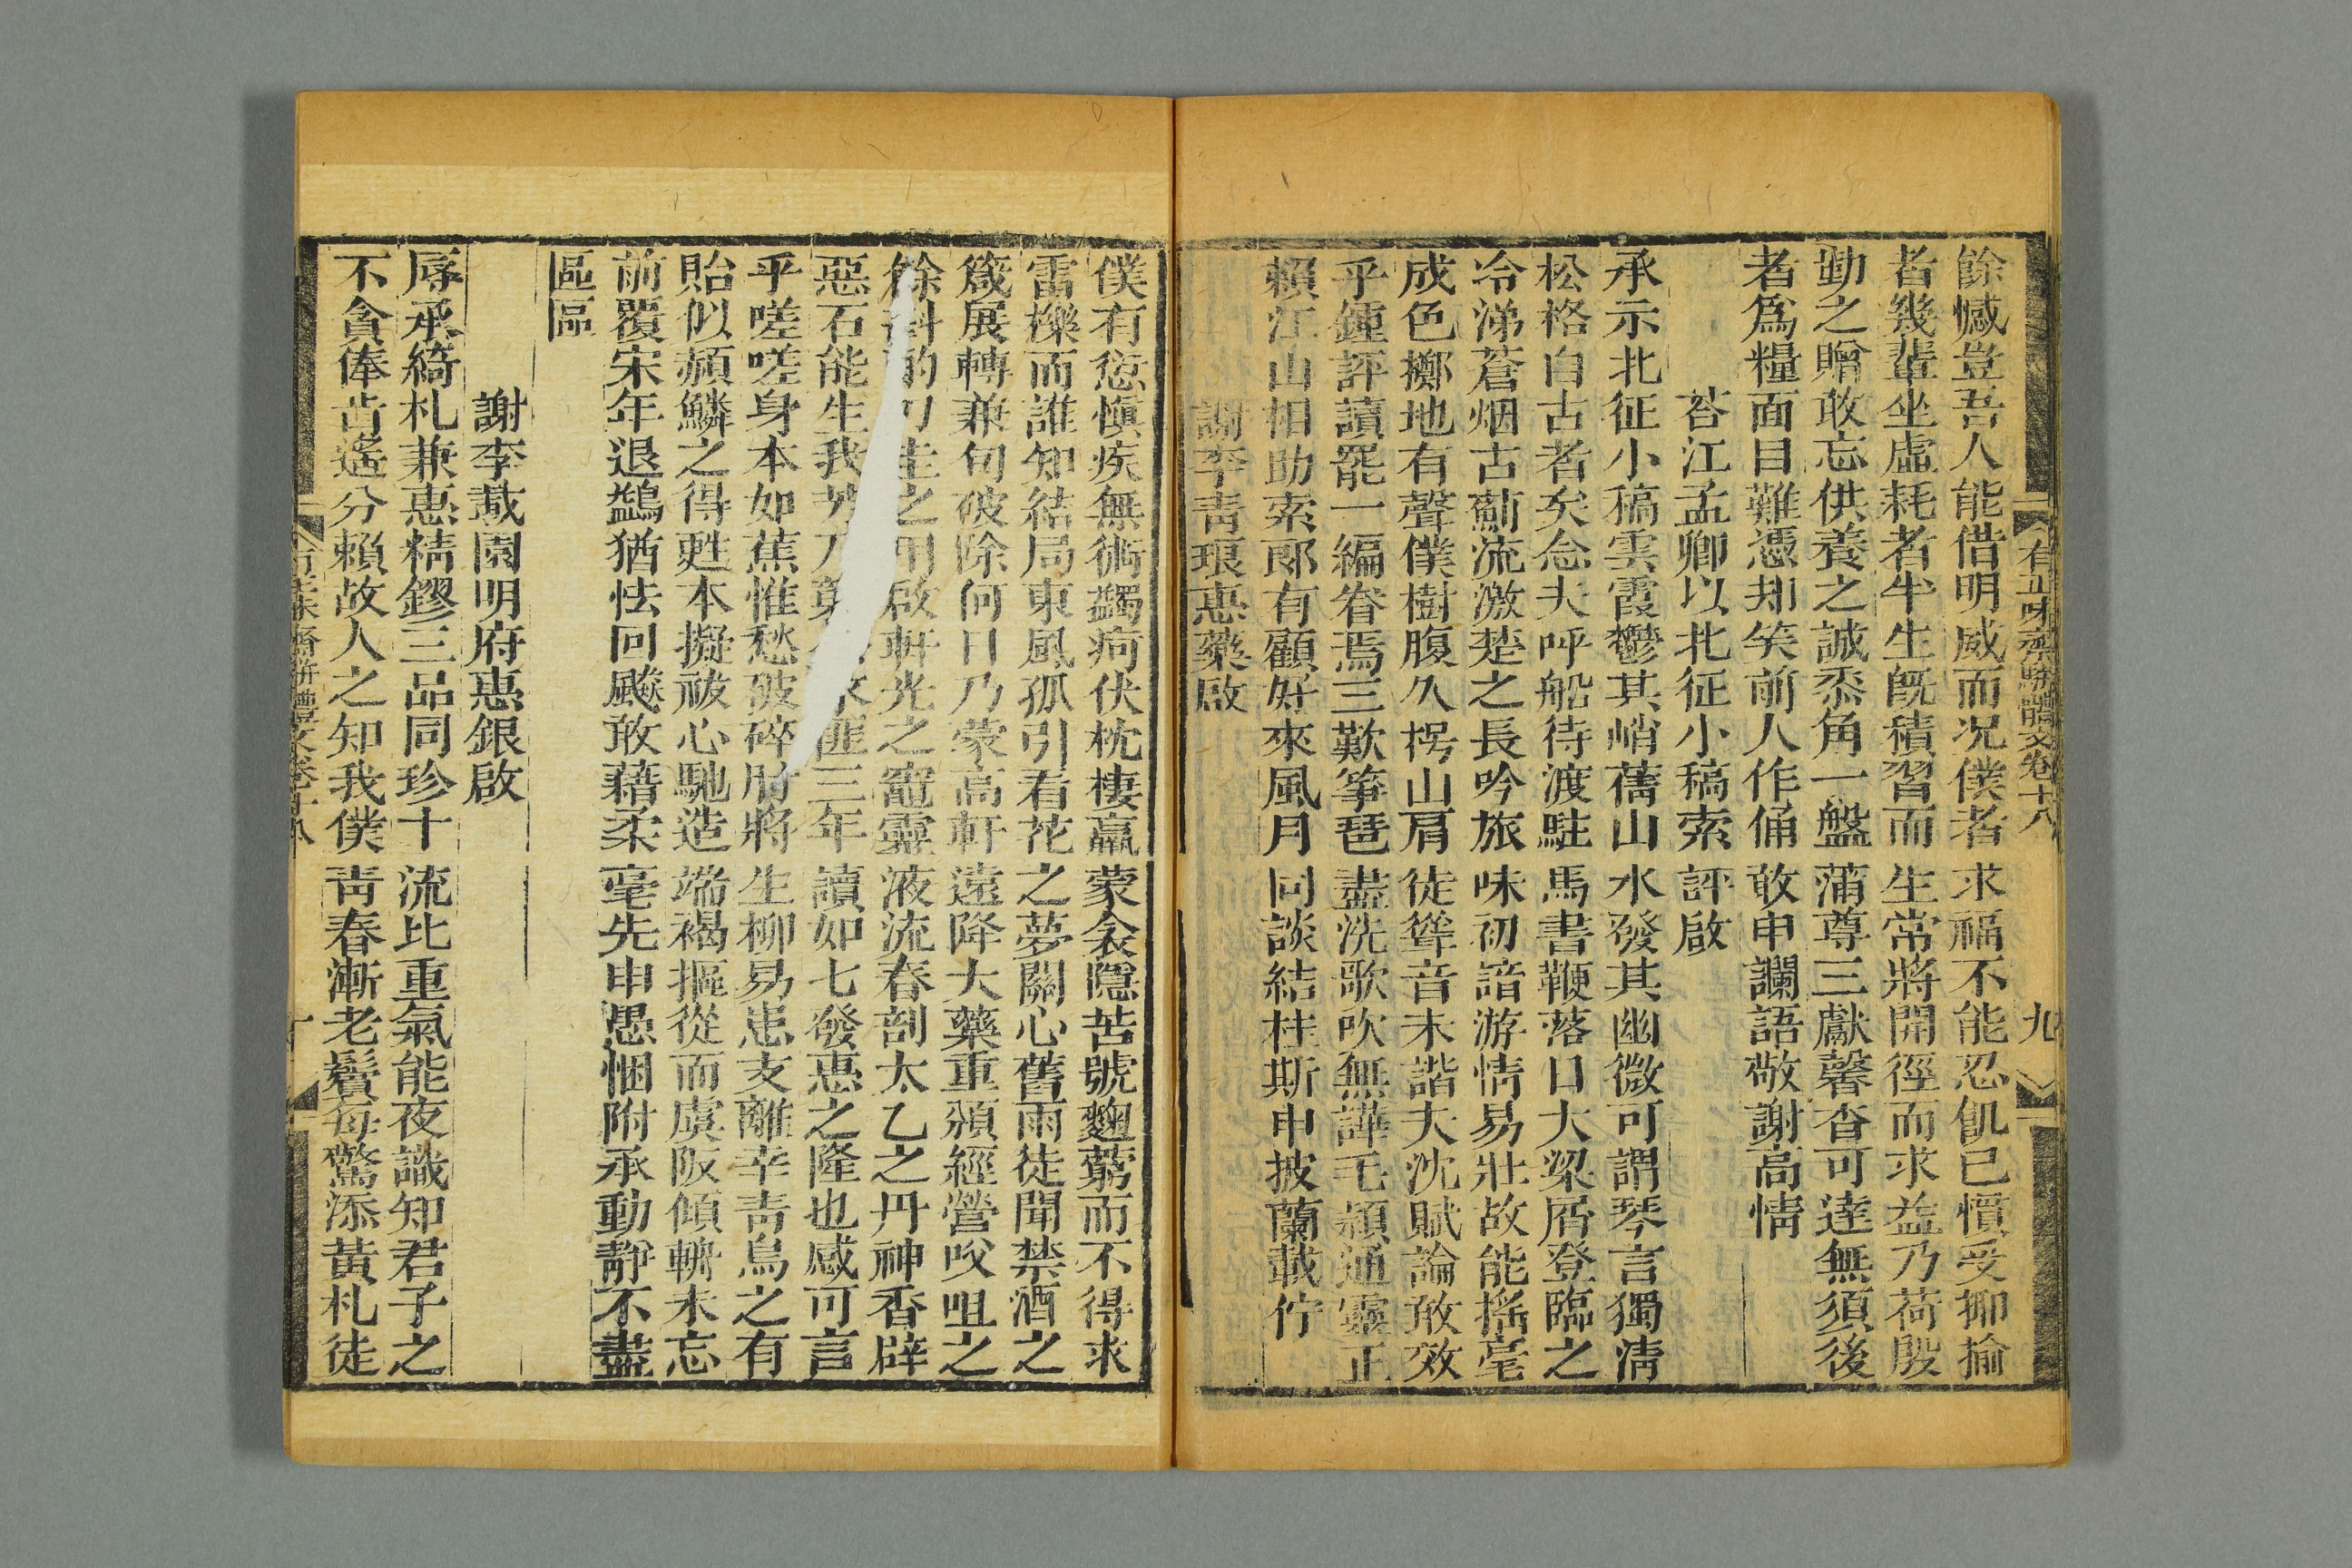 有正味齋駢體文卷十八 九
餘憾豈吾人能借明威而況僕者求福不能忍飢已慣受揶揄
者幾輩坐虛耗者半生旣積習而生常將開徑而求益乃荷殷
勤之贈敢忘供養之誠黍角一盤蒲尊三獻馨杳可達無須後
者爲糧面目難憑却笑前人作俑敢申讕語敬謝高情
荅江孟卿以北征小稿索評啟
承示北征小稿雲霞鬱其峭蒨山水發其幽微可謂琴言獨淸
松格自古者矣念夫呼船待渡駐馬書鞭落日大梁屑登臨之
冷涕蒼烟古薊流激楚之長吟旅味初諳游情易壯故能搖毫
成色擲地有聲僕樹腹久枵山肩徒聳音未諧夫沈賦論敢效
乎鍾評讀罷一編眷焉三歎筝琶盡洗歌吹無譁毛穎通靈正
賴江山相助索郞有顧好來風月同談結桂斯申披蘭載佇
謝李靑琅惠藥啟
僕有愆愼疾無術蠲疴伏枕棲羸蒙衾隱苦號麴藭而不得求
雷櫟而誰知結局東風孤引看花之夢關心舊雨徒聞禁酒之
箴展轉兼旬破除何日乃蒙高軒遠降大藥重頒經營㕮咀之
餘斟酌刀圭之用啟軒光之竈靈液流春剖太乙之丹神香辟
惡石能生我艾乃三年讀如七發惠之隆也感可言
乎嗟嗟身本如蕉惟愁破碎肘將生柳易患支離幸靑鳥之有
貽似頳鱗之得甦本擬祓心馳造端褐摳從而虞阪傾輈未忘
前覆宋年退鷁猶怯回飈敢藉柔毫先申愚悃附承動靜不盡
區區
謝李載園明府惠銀啟
辱承綺札兼惠精鏐三品同珍十流比重氣能夜識知君子之
不貪俸苗遙分賴故人之知我僕靑春漸老鬢每驚添黃札徒
有正味齋駢體文卷十八 十